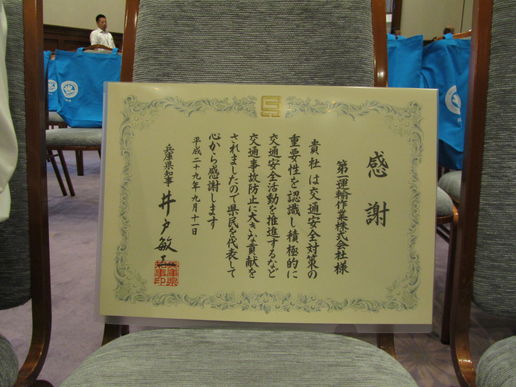 感謝
第一運輸作業株式会社様
貴社は交通安全対策の
重要性を認識し積極的に
交通安全活動を推進するなど
交通事故防止に大きな貢献を
されましたので県民を代表して
心から感謝します
平成二十九年九月十一日
兵庫県知事 井戸敏三